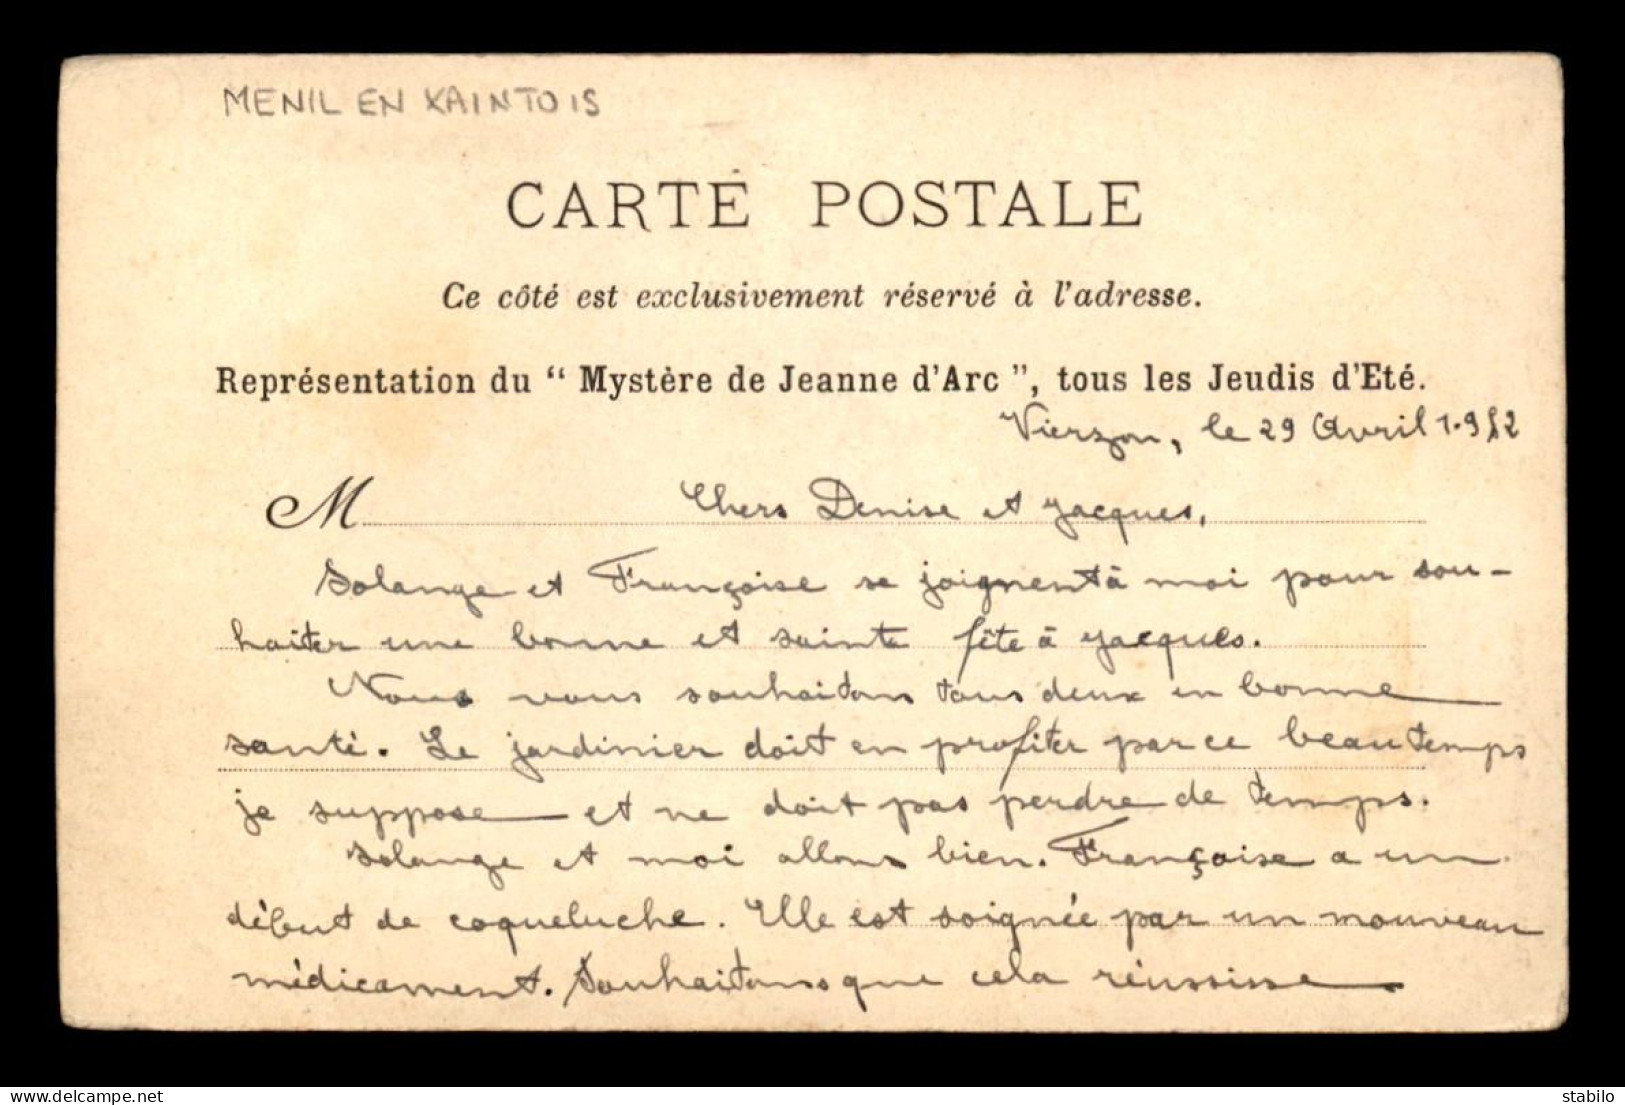 MENIL EN XAINTOIS
CARTE POSTALE
Ce côté est exclusivement réservé à l'adresse.
Représentation du “ Mystère de Jeanne d'Arc ”, tous les Jeudis d'Eté.
Vierzon, le 29 Avril 1.952
M Chers Denise et Jacques,
Solange et Françoise se joignent à moi pour sou-
haiter une bonne et sainte fête à Jacques.
Nous vous souhaitons tous deux en bonne
santé. Le jardinier doit en profiter par ce beau temps
je suppose et ne doit pas perdre de temps.
Solange et moi allons bien. Françoise a un
début de coqueluche. Elle est soignée par un nouveau
médicament. Souhaitons que cela réussisse
www.delcampe.net
stabilo